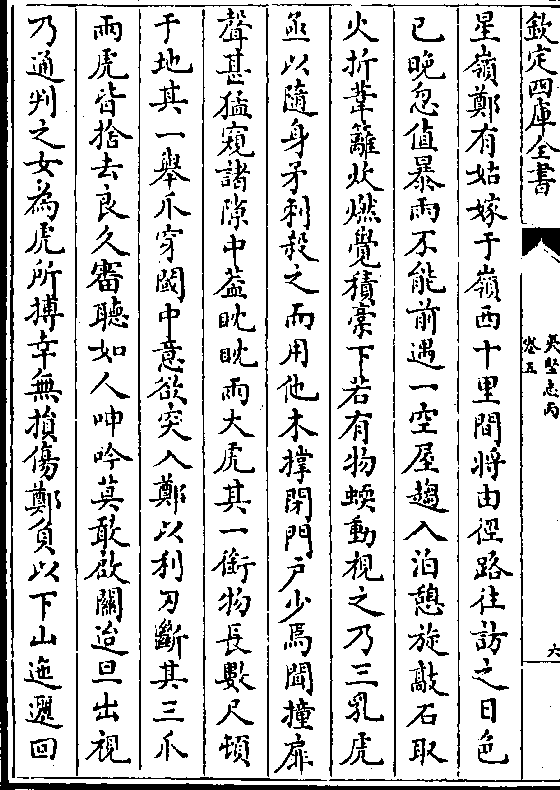 欽定四庫全書
夷堅志丙
卷五
六
星嶺鄭有姑嫁于嶺西十里間將由徑路往訪之日色
已晚忽值暴雨不能前遇一空屋趨入泊憩旋敲石取
火折葦籬炊燃覺積藁下若有物蝡動視之乃三乳虎
亟以隨身矛刺殺之而用他木撑閉門戸少焉聞撞扉
聲甚猛窺諸隙中葢眈眈兩大虎其一銜物長數尺頓
于地其一舉爪穿閾中意欲突入鄭以利刀斷其三爪
兩虎皆捨去良久審聽如人呻吟莫敢啟關迨旦出視
乃通判之女為虎所搏幸無損傷鄭負以下山迤邐回